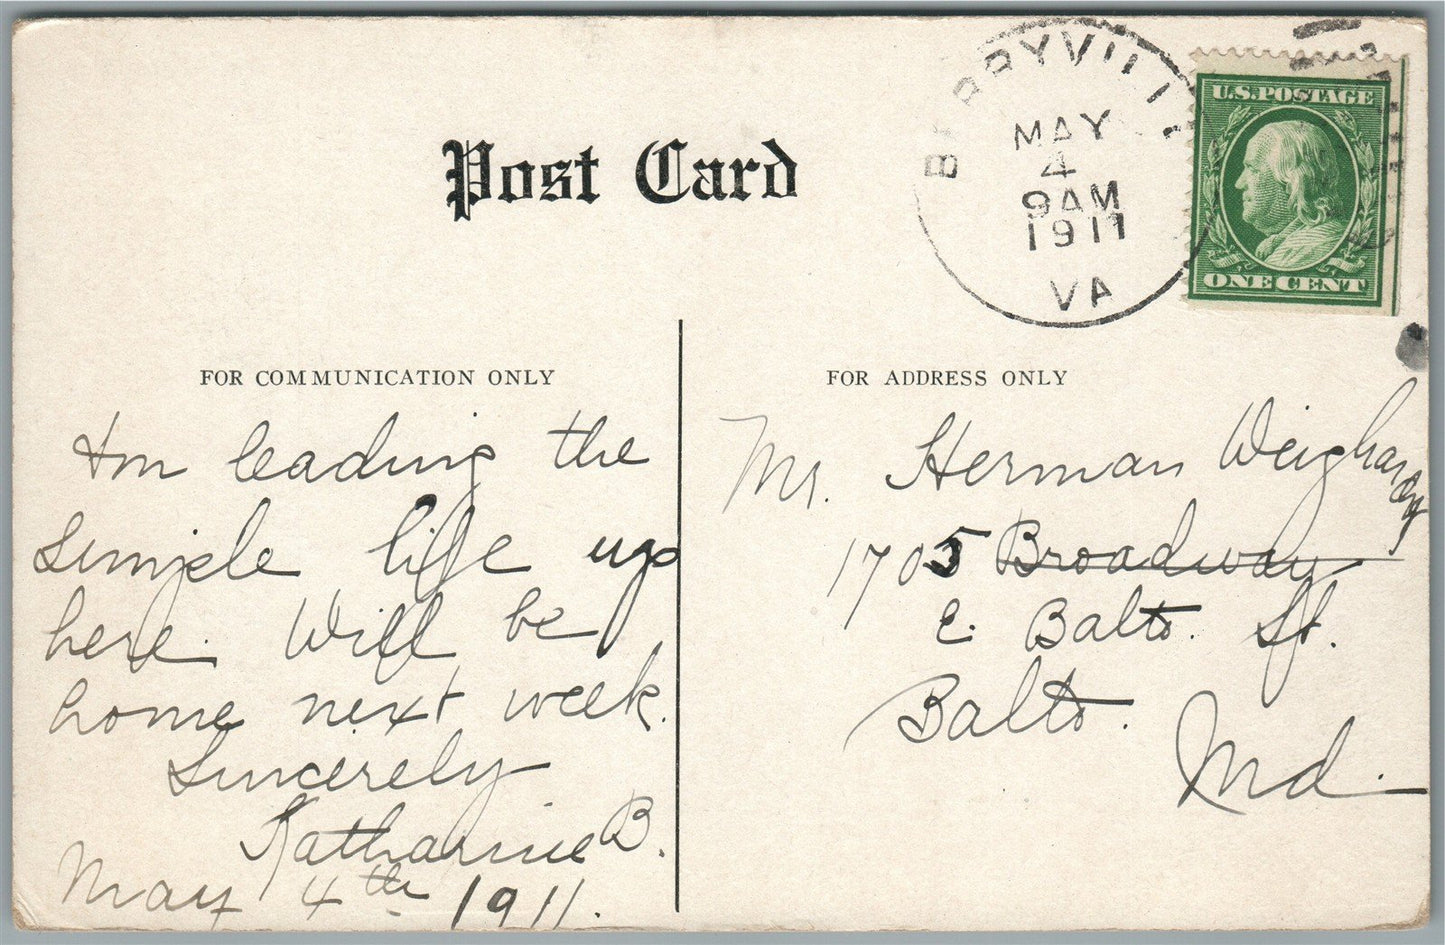 Post Card
BERRYVILLE
MAY
4
9AM
1911
VA
U.S. POSTAGE
ONE CENT
FOR COMMUNICATION ONLY
Am leading the
simple life up
here. Will be
home next week.
Sincerely
Katharine B.
May 4th 1911.
FOR ADDRESS ONLY
Mr. Herman Weighardy
1705 Broadway
E. Balto. St.
Balto. Md.